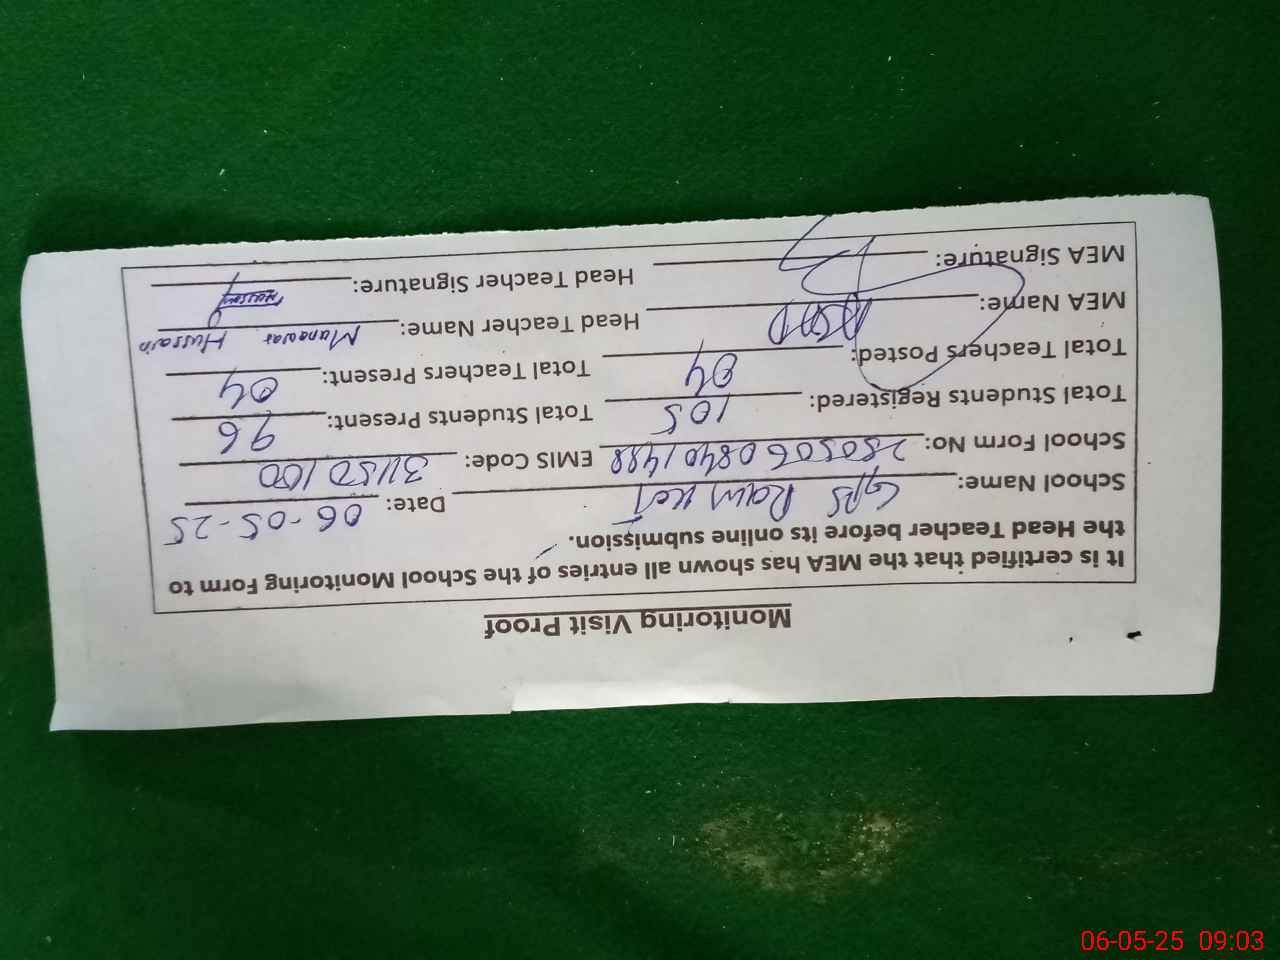 Monitoring Visit Proof
It is certified that the MEA has shown all entries of the School Monitoring Form to
the Head Teacher before its online submission.
School Name: GPS Date: 06-05-25
School Form No: EMIS Code: 31150100
Total Students Registered: 105 Total Students Present: 96
Total Teachers Posted: 04 Total Teachers Present: 04
MEA Name: ASAD Head Teacher Name: Munawar Hussain
MEA Signature: Head Teacher Signature:
06-05-25 09:03